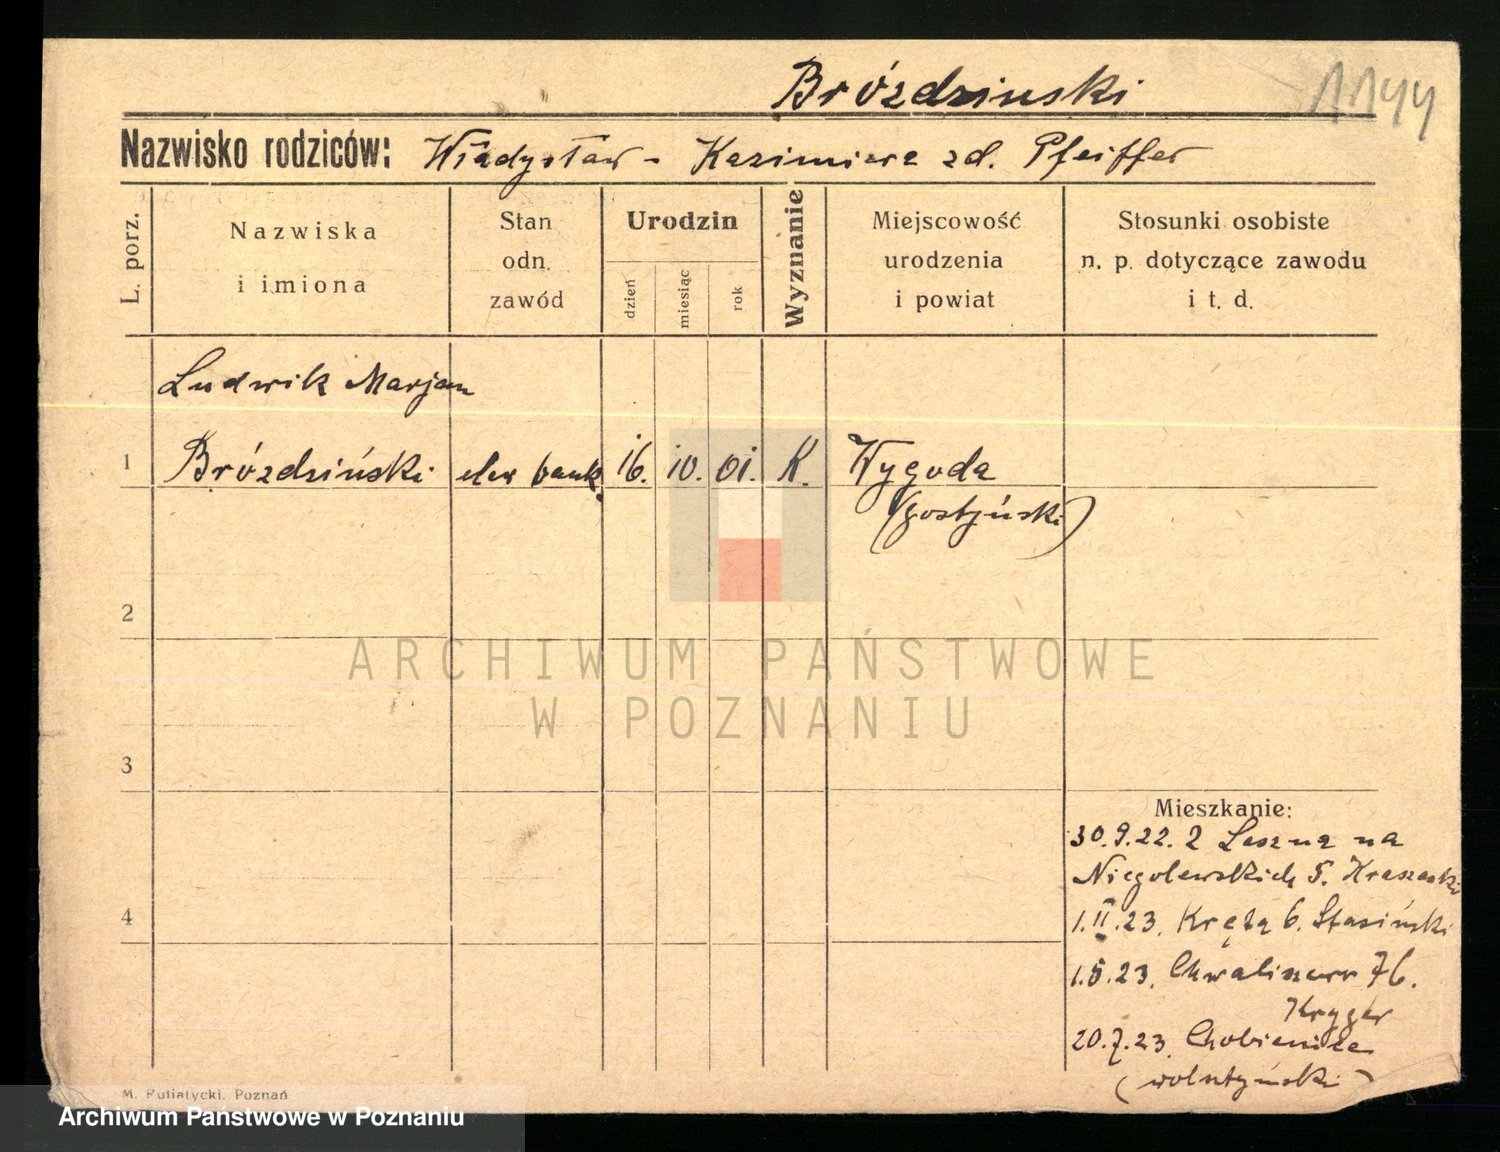 Brózdzinski 1144
Nazwisko rodziców: Władysław - Kazimiera zd. Pfeiffer
L. porz.
Nazwiska
i imiona
Stan
odn.
zawód
Urodzin
dzień
miesiąc
rok
Wyznanie
Miejscowość
urodzenia
i powiat
Stosunki osobiste
n. p. dotyczące zawodu
i t. d.
Ludwik Marjan
1 Brózdziński elew bank. 16. 10. 01. K. Wygoda
(gostyński)
2
ARCHIWUM PAŃSTWOWE
W POZNANIU
3
Mieszkanie:
30.9.22. z Leszna na
Niegolewskich 5.
4
1.II.23. Kręta 6. Stasiński
1.5.23. Chwaliszewo 76.
Kryger
20.7.23. Chobienice
(wolsztyński)
M. Putiatycki, Poznań
Archiwum Państwowe w Poznaniu